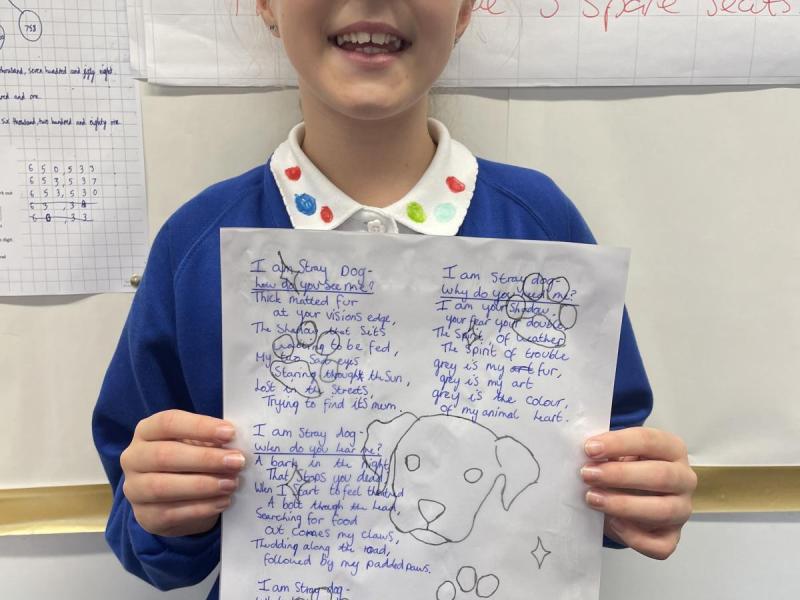 758
thousand, seven hundred and fifty eight
red and one.
six thousand, two hundred and eighty one.
6 5 0, 5 3 3
6 5 3, 5 3 7
6 5 3, 5 3 0
3 spare seats
I am Stray Dog-
how do you see me?
Thick matted fur
at your visions edge,
The Shadow that Sits
waiting to be fed,
My two Sad eyes
Staring throught the Sun,
Lost in the Streets,
Trying to find its mum.
I am Stray dog-
when do you hear me?
A bark in the night
That Stops you dead,
When I Start to feel
A bolt through the head,
Searching for food
out comes my claws,
Thudding along the road,
followed by my padded paws.
I am Stray dog-
I am Stray dog-
why do you need me?
I am your Shadow,
your fear your double
The Spirit of weather
The Spirit of trouble
grey is my art fur,
grey is my art
grey is the colour,
of my animal heart.